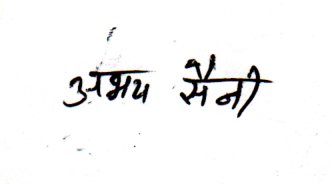 अभय सैनी